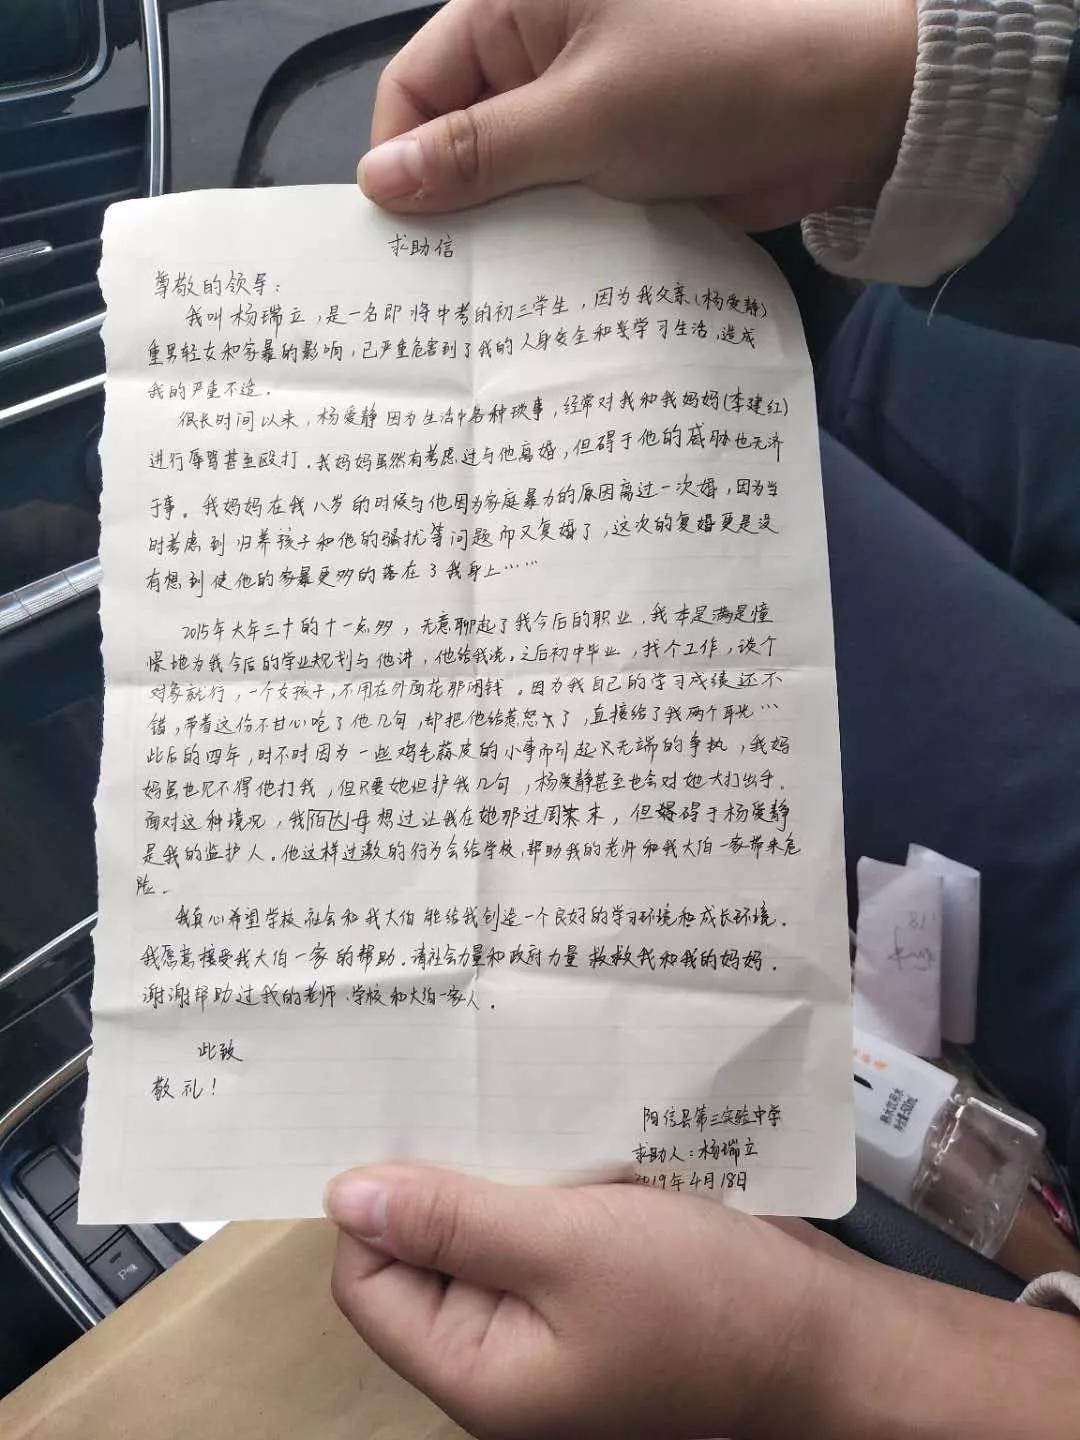 求助信
尊敬的领导：
我叫杨瑞立，是一名即将中考的初三学生，因为我父亲(杨爱静)
重男轻女和家暴的影响，已严重危害到了我的人身安全和学习生活，造成
我的严重不适．
很长时间以来，杨爱静因为生活中各种琐事，经常对我和我妈妈(李建红)
进行辱骂甚至殴打．我妈妈虽然有考虑过与他离婚，但碍于他的威胁也无济
于事。我妈妈在我八岁的时候与他因为家庭暴力的原因离过一次婚，因为当
时考虑到归养孩子和他的骚扰等问题而又复婚了，这次的复婚更是没
有想到使他的家暴更多的落在了我身上……
2015年大年三十的十一点多，无意聊起了我今后的职业．我本是满是憧
憬地为我今后的学业规划与他讲，他给我说．之后初中毕业，找个工作，谈个
对象就行，一个女孩子，不用在外面花那闲钱。因为我自己的学习成绩还不
错，带着这份不甘心呛了他几句，却把他给惹怒了，直接给了我两个耳光…
此后的四年，时不时因为一些鸡毛蒜皮的小事而引起无端的争执，我妈
妈虽也见不得他打我，但只要她袒护我几句，杨爱静甚至也会对她大打出手．
面对这种境况，我母想过让我在她那过周末，但碍于杨爱静
是我的监护人．他这样过激的行为会给学校、帮助我的老师和我大伯一家带来危
险．
我真心希望学校社会和我大伯能给我创造一个良好的学习环境和成长环境．
我愿意接受我大伯一家的帮助．请社会力量和政府力量救救我和我的妈妈．
谢谢帮助过我的老师、学校和大伯一家人．
此致
敬礼！
阳信县第三实验中学
求助人：杨瑞立
2019年4月18日